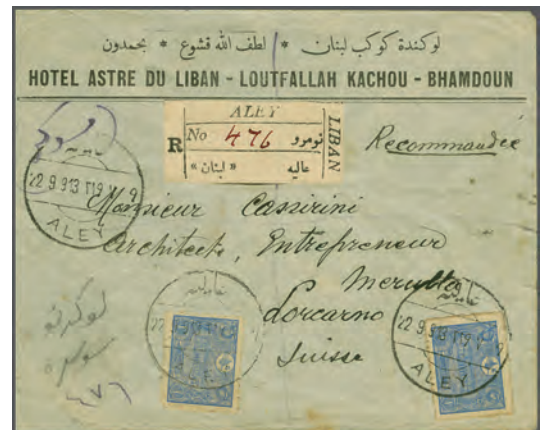 لوكندة كوكب لبنان * لطف الله قشوع * بحمدون
HOTEL ASTRE DU LIBAN - LOUTFALLAH KACHOU - BHAMDOUN
ALEY
R No 476 نومرو
« لبنان » عاليه
LIBAN
Recommandée
22 9 913
ALEY
Monsieur Cassirini
Architecte, Entrepreneur
Lorcarno
Suisse
22 9 913
ALEY
٤٧٦